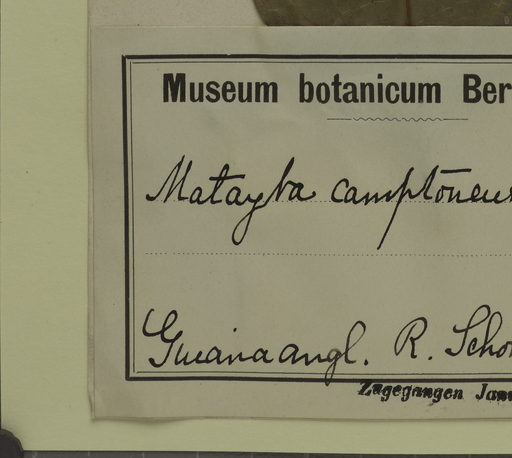 Museum botanicum Ber
Matayba camptoneu
Guiana angl. R. Scho
Zugegangen Jan